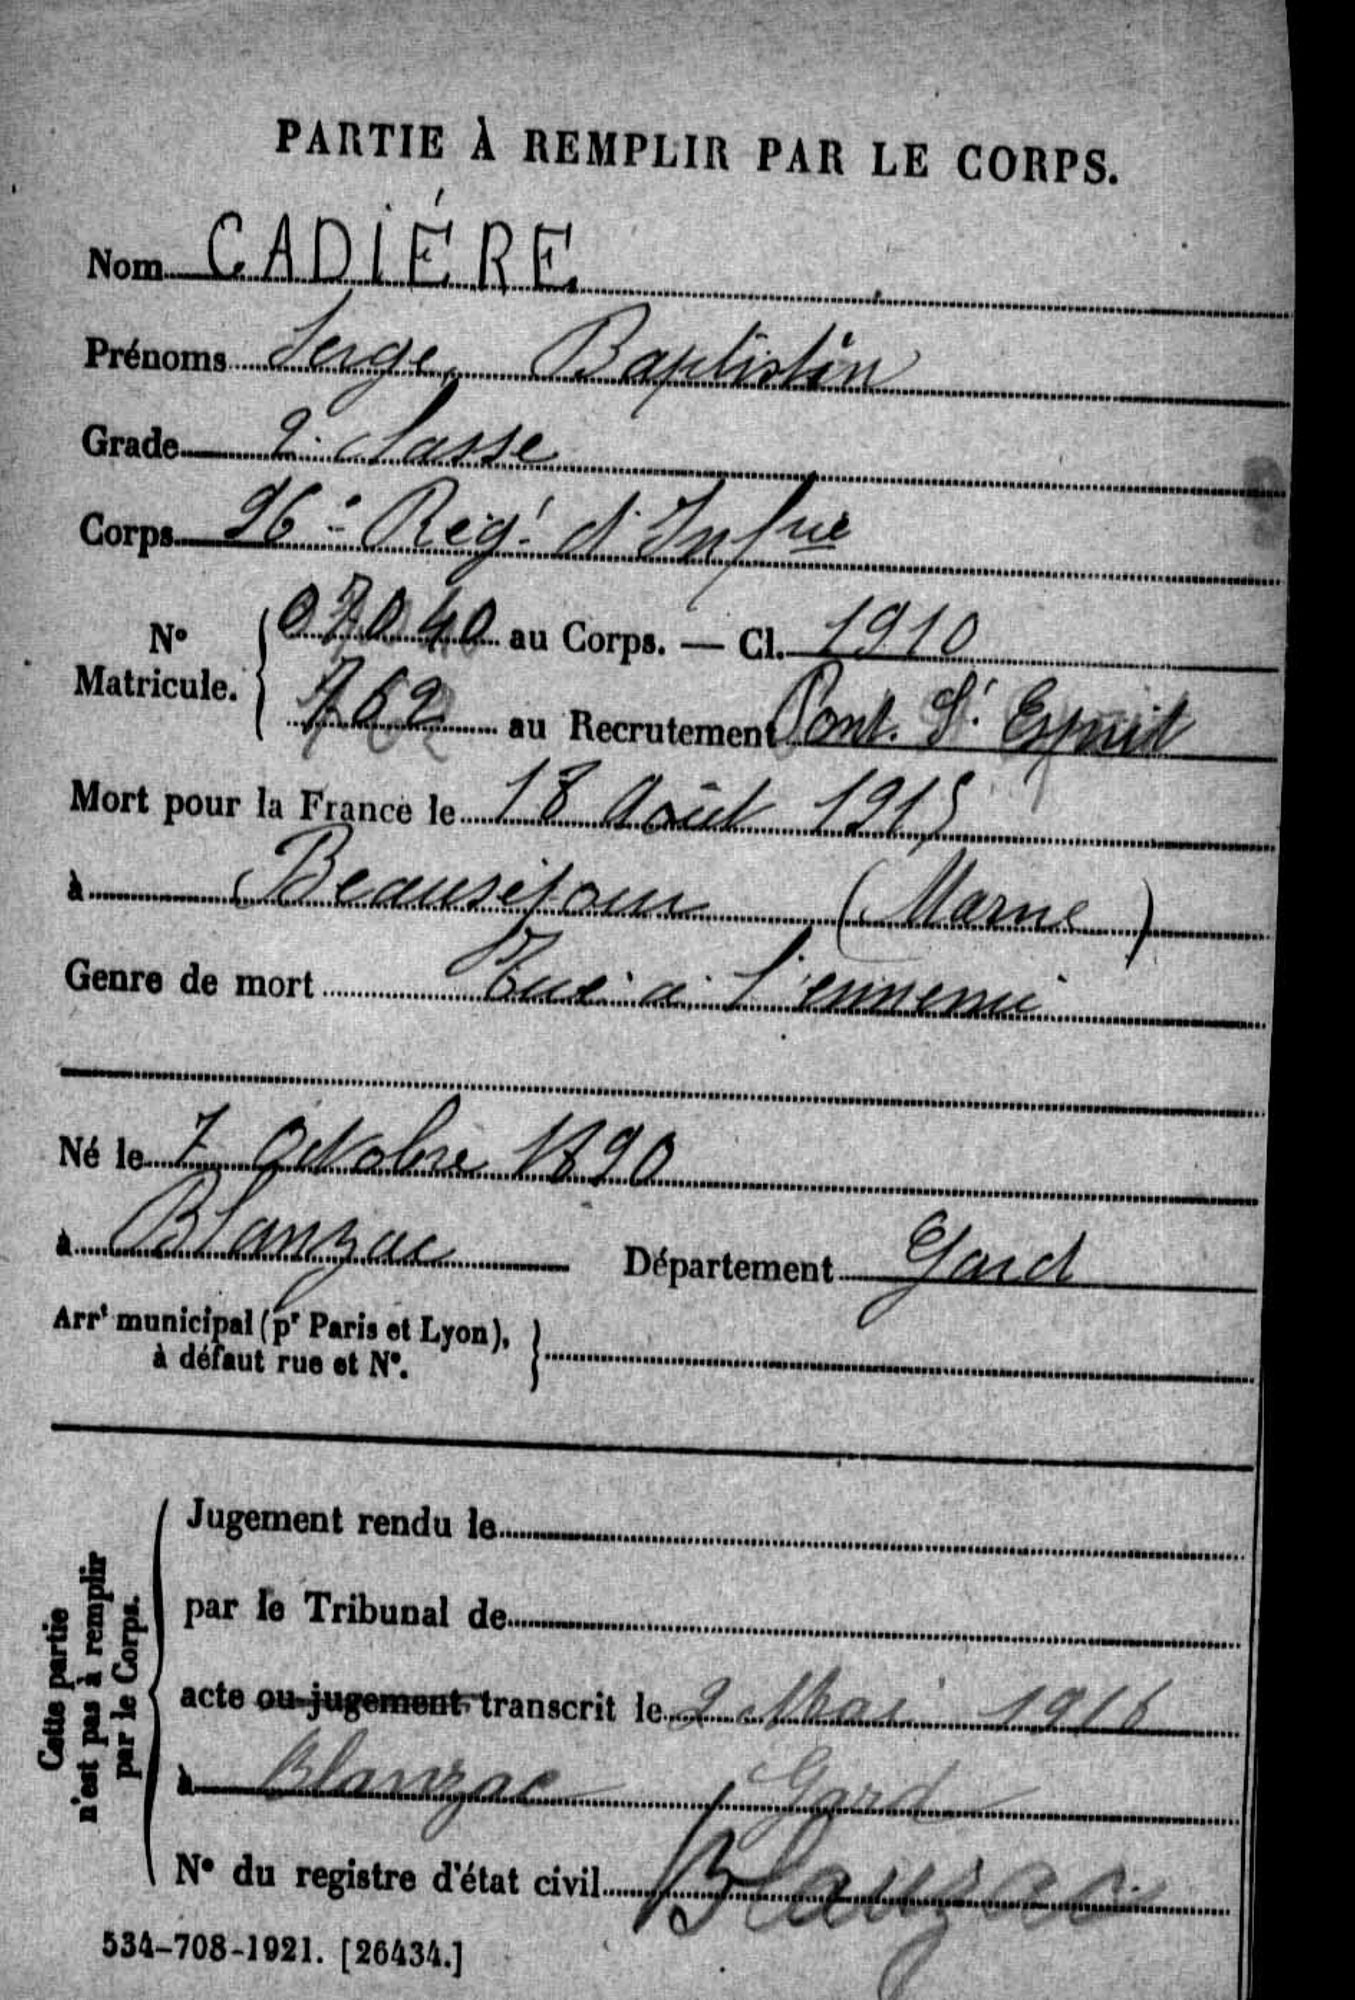 PARTIE À REMPLIR PAR LE CORPS.
Nom CADIÉRE
Prénoms Serge Baptistin
Grade 2e classe
Corps 96e Régt d'Infrie
No Matricule. { 07040 au Corps. — Cl. 1910
762 au Recrutement Pont. St Esprit
Mort pour la France le 18 Août 1915
à Beauséjour (Marne)
Genre de mort Tué à l'ennemi
Né le 7 Octobre 1890
à Blanzac Département Gard
Arrt municipal (pr Paris et Lyon), à défaut rue et No.
Cette partie n'est pas à remplir par le Corps.
Jugement rendu le
par le Tribunal de
acte ou jugement transcrit le 2 Mai 1916
à Blanzac Gard
No du registre d'état civil Blauzac
534-708-1921. [26434.]